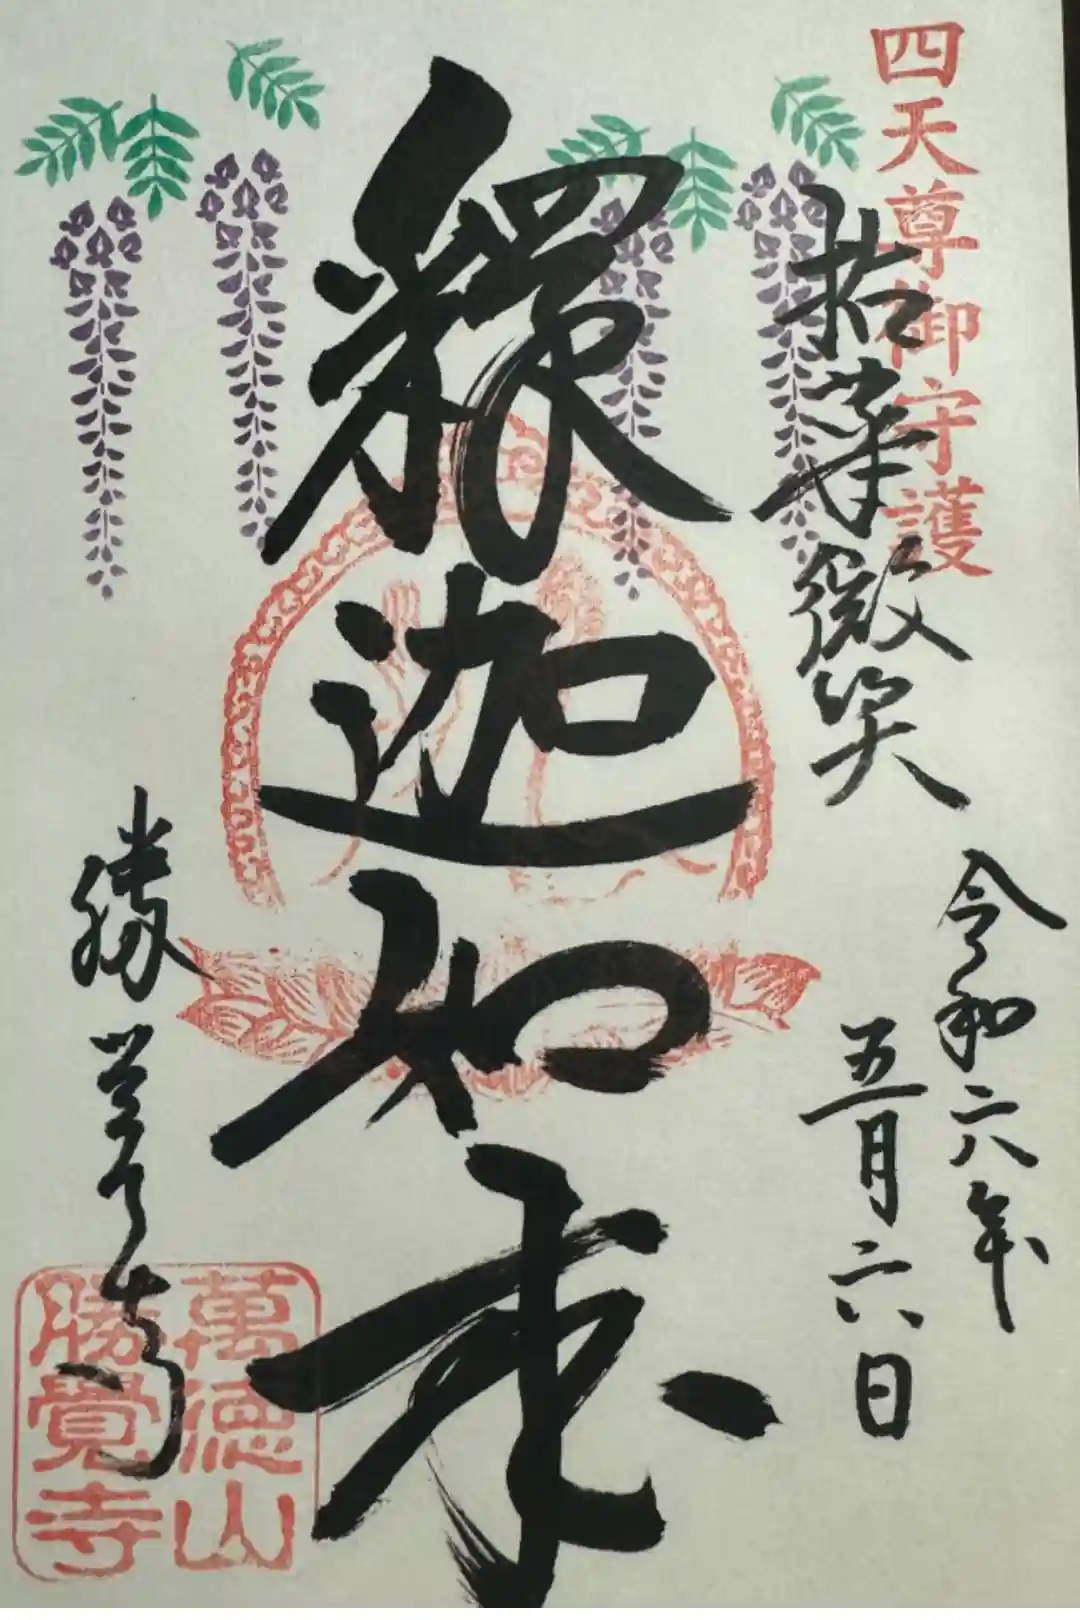 四天尊御守護
拈華微笑
令和六年
五月六日
釈迦如来
勝覚寺
萬徳山
勝覺寺